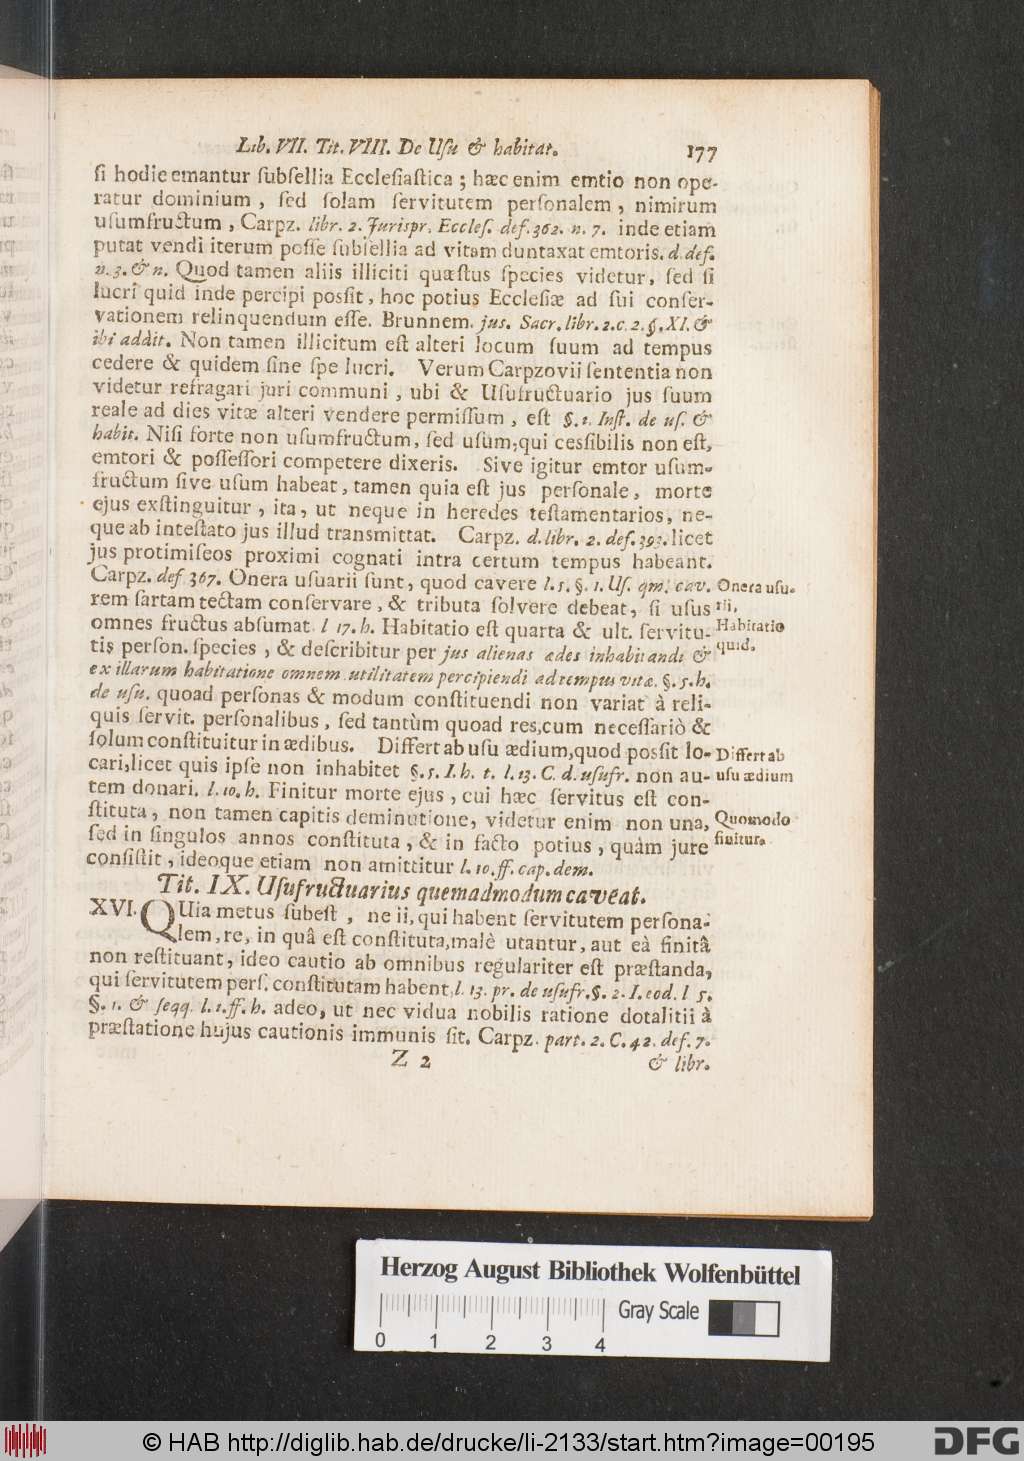 Lib. VII. Tit. VIII. De Uſu & habitat. 177
ſi hodie emantur ſubſellia Eccleſiaſtica ; hæc enim emtio non ope-
ratur dominium , ſed ſolam ſervitutem perſonalem , nimirum
uſumfructum , Carpz. libr. 2. Jurispr. Eccleſ. def. 362. n. 7. inde etiam
putat vendi iterum poſſe ſubſellia ad vitam duntaxat emtoris. d. def.
n. 3. & n. Quod tamen aliis illiciti quæſtus ſpecies videtur, ſed ſi
lucri quid inde percipi poſſit, hoc potius Eccleſiæ ad ſui conſer-
vationem relinquendum eſſe. Brunnem. jus. Sacr. libr. 2. c. 2. §. XI. &
ibi addit. Non tamen illicitum eſt alteri locum ſuum ad tempus
cedere & quidem ſine ſpe lucri. Verum Carpzovii ſententia non
videtur refragari juri communi , ubi & Uſufructuario jus ſuum
reale ad dies vitæ alteri vendere permiſſum , eſt §. 1. Inſt. de uſ. &
habit. Niſi forte non uſumfructum, ſed uſum, qui cesſibilis non eſt,
emtori & poſſeſſori competere dixeris. Sive igitur emtor uſum-
fructum ſive uſum habeat, tamen quia eſt jus perſonale, morte
ejus exſtinguitur , ita, ut neque in heredes teſtamentarios, ne-
que ab inteſtato jus illud transmittat. Carpz. d. libr. 2. def. 393. licet
jus protimiſeos proximi cognati intra certum tempus habeant.
Carpz. def. 367. Onera uſuarii ſunt, quod cavere l. 5. §. 1. Uſ. qm. cav.
Onera uſu-
rem ſartam tectam conſervare, & tributa ſolvere debeat, ſi uſus
rii.
omnes fructus abſumat. l 17. h. Habitatio eſt quarta & ult. ſervitu-
Habitatio
tis perſon. ſpecies , & deſcribitur per jus alienas ædes inhabitandi &
quid.
ex illarum habitatione omnem utilitatem percipiendi ad tempus vitæ. §. 5. h.
de uſu. quoad perſonas & modum conſtituendi non variat à reli-
quis ſervit. perſonalibus, ſed tantùm quoad res, cum neceſſariò &
ſolum conſtituitur in ædibus. Differt ab uſu ædium, quod posſit lo-
Differt ab
cari, licet quis ipſe non inhabitet §. 5. I. h. t. l. 13. C. d. uſufr. non au-
uſu ædium
tem donari. l. 10. h. Finitur morte ejus , cui hæc ſervitus eſt con-
ſtituta, non tamen capitis deminutione, videtur enim non una,
Quomodo
ſed in ſingulos annos conſtituta, & in facto potius, quàm jure
finitur.
conſiſtit, ideoque etiam non amittitur l. 10. ff. cap. dem.
Tit. IX. Uſufructuarius quemadmodum caveat.
XVI. QUia metus ſubeſt , ne ii, qui habent ſervitutem perſona-
lem, re, in quâ eſt conſtituta, malè utantur, aut eà finitâ
non reſtituant, ideo cautio ab omnibus regulariter eſt præſtanda,
qui ſervitutem perſ. conſtitutam habent, l. 13. pr. de uſufr. §. 2. I. eod. l 5.
§. 1. & ſeqq. l. 1. ff. h. adeo, ut nec vidua nobilis ratione dotalitii à
præſtatione hujus cautionis immunis ſit. Carpz. part. 2. C. 42. def. 7.
Z 2 & libr.
Herzog August Bibliothek Wolfenbüttel
Gray Scale
0 1 2 3 4
© HAB http://diglib.hab.de/drucke/li-2133/start.htm?image=00195
DFG